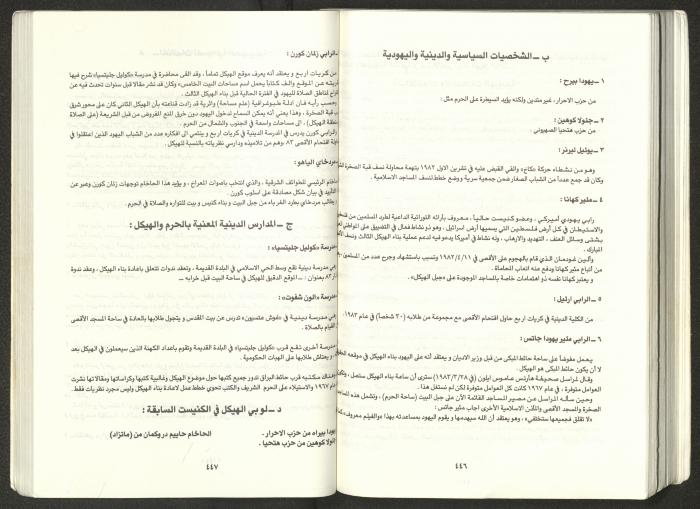 ب ــ الشخصيات السياسية والدينية واليهودية
١ ــ يهودا بيرح :
من حزب الاحرار، غير متدين ولكنه يؤيد السيطرة على الحرم مثل:
٢ ــ جئولا كوهين :
من حزب هتحيا الصهيوني .
٣ ــ يوئيل ليرنر :
وهو من نشطاء حركة «كاخ» والقي القبض عليه في تشرين الاول ١٩٨٢ بتهمة محاولة نسف قبة الصخرة
وكان قد جمع عدداً من الشباب الصغار ضمن جمعية سرية وضع خطط لنسف المساجد الاسلامية .
٤ ــ مئير كهانا :
رابي يهودي أميركي ، وعضو كنيست حالياً ، معروف بآرائه التوراتية الداعية لطرد المسلمين من
والاستيطان في كل أرض فلسطين التي يسميها أرض اسرائيل ، وهو ذو نشاط فعال في التضييق على
بشتى وسائل العنف ، التهديد والارهاب ، وله نشاط في أميركا يدعو فيه لدعم عملية بناء الهيكل الثالث
المبارك .
وألين غودمان الذي قام بالهجوم على الأقصى في ١٩٨٢/٤/١١ وتسبب باستشهاد وجرح عدد من المسلمين
من أتباع مئير كهانا ودفع عنه اتعاب المحاماة .
و يعتبر كهانا نفسه ذو اهتمامات خاصة بالمساجد الموجودة على «جبل الهيكل» .
٥ ــ الرابي ارئيل :
من الكلية الدينية في كريات اربع حاول اقتحام الأقصى مع مجموعة من طلابه (٣٠ شخصاً) في عام ١٩٨٢.
٦ ــ الرابي مئير يهودا جاتس :
يعمل مفوضاً على ساحة حائط المبكى من قبل وزير الاديان و يعتقد أنه على اليهود بناء الهيكل في موقعه
لا أن يكون حائط المبكى هو الهيكل .
وقال لمراسل صحيفة هآرتس عاموس ايلون (في ١٩٨٣/٣/٢٨) سترى أن ساعة بناء الهيكل ستصل ،
العوامل متوفرة ، في عام ١٩٦٧ كانت كل العوامل متوفرة لكن لم نستغل هذا .
وحين سأله المراسل عن مصير المساجد القائمة الآن على جبل البيت (ساحة الحرم) ، وتشمل هذه
الصخرة والمسجد الأقصى والمآذن الاسلامية الأخرى اجاب مئير جاتس :
«لا تقلق فجميعها ستختفي» ، وهو يعتقد أن الله سيهدمها و يقوم اليهود بمساعدته بهذا
٤٤٦
الرابي زلمان كورن :
من كريات اربع و يعتقد أنه يعرف موقع الهيكل تماماً ، وقد القى محاضرة في مدرسة «كوليل جليتسيا» شرح فيها
عن الموقع والف كتاباً يحمل اسم ساحات البيت الخامس» وكان قد نشر مقالا قبل سنوات تحدث فيه عن
مناطق الصلاة لليهود في الفترة الحالية قبل بناء الهيكل الثالث .
بحسب رأيه فأن ادلة طبوغرافية (علم مساحة) واثرية قد زادت قناعته بأن الهيكل الثاني كان على محور شرق
قبة الصخرة ، وهذا يعني أنه يمكن السماح لدخول اليهود دون خرق المنع المفروض من قبل الشريعة (على الصلاة
الهيكل) ، الى مساحات واسعة في الجنوب والشمال من الحرم .
كورن يدرس في المدرسة الدينية في كريات اربع و ينتمي الى افكاره عدد من الشباب اليهود الذين اعتقلوا في
اقتحام الأقصى ٨٣ ،وهم من تلاميذه ودارسي نظرياته بالنسبة للهيكل .
مردخاي الياهو :
الرئيسي للطوائف الشرقية ، والذي انتخب باصوات المعراخ ، و يؤيد هذا الحاخام توجهات زمان كورن وعبر عن
التأييد في بيان شكل مصادقة على اسلوب كورن .
يطالب مردخاي بطرد الغرباء من جبل البيت و بناء كنيس و بيت للتوراه والصلاة في الحرم .
ج ــ المدارس الدينية المعنية بالحرم والهيكل :
مدرسة «كوليل جليتسيا» :
هي مدرسة دينية تقع وسط الحي الاسلامي في البلدة القديمة ، وتعقد ندوات تتعلق باعادة بناء الهيكل ، وعقد ندوة
٨٣ بعنوان : ــ الموقع الدقيق للهيكل في ساحة البيت قبل خرابه ــ
مدرسة «الون شفوت» :
هي مدرسة دينية في «غوش عتسيون» تدرس عن بيت المقدس و يتجول طلابها بالعادة في ساحة المسجد الأقصى
القيام بالصلاة .
مدرسة أخرى تقع قرب «كوليل جليتسيا» في البلدة القديمة وتقوم باعداد الكهنة الذين سيعملون في الهيكل بعد
، و يعتاش طلابها على الهبات الحكومية .
مكتبه قرب حائط البراق تدور جميع كتبها حول موضوع الهيكل وغالبية كتبها وكراساتها ومقالاتها نشرت
عام ١٩٦٧ والاستيلاء على الحرم الشريف والكتب تحوي خطط عمل لاعادة بناء الهيكل وليس مجرد نظريات فقط.
د ــ لو بي الهيكل في الكنيست السابقة :
يهودا بيراه من حزب الاحرار .
الحاخام حاييم دروكمان من (ماتزاد)
جئولا كوهين من حزب هتحيا .
٤٤٧